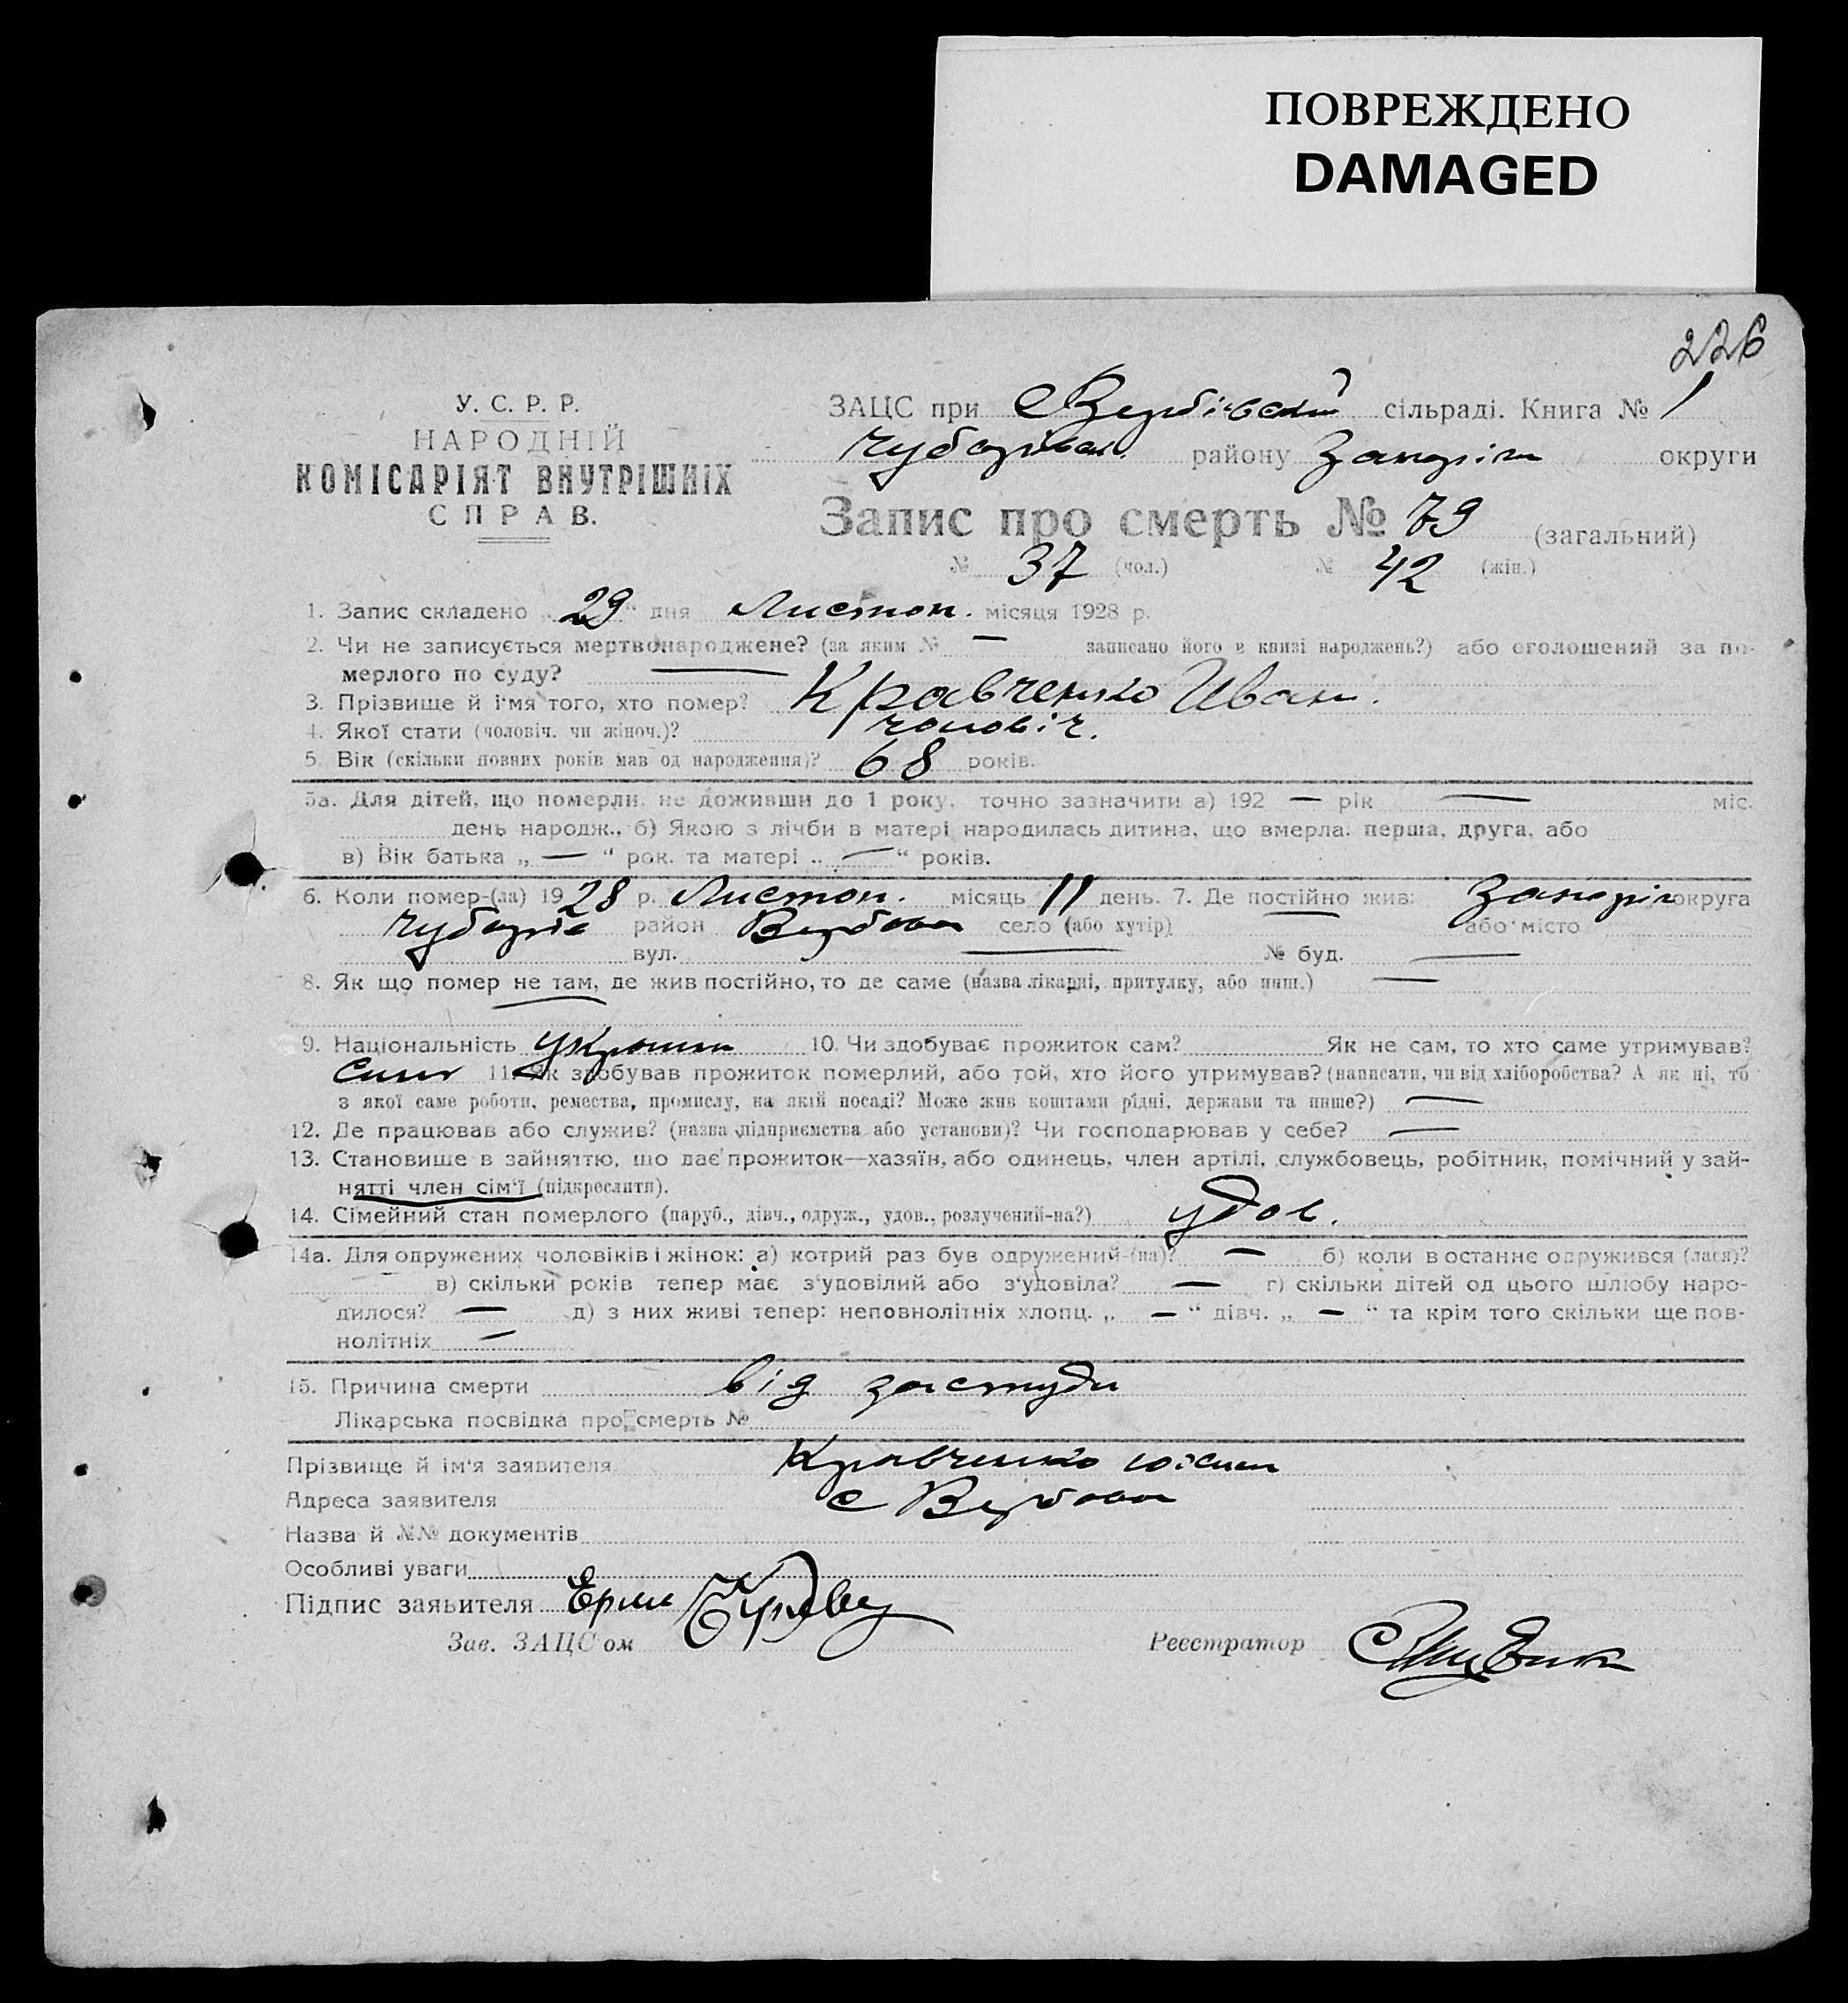 ПОВРЕЖДЕНО
DAMAGED
226
У. С. Р. Р.
НАРОДНІЙ
КОМІСАРІЯТ ВНУТРІШНІХ
СПРАВ.
ЗАЦС при Вербівській сільраді. Книга № 1
Чубарівськ. району Запоріж округи
Запис про смерть № 79 (загальний)
№ 37 (чол.) № 42 (жін.)
1. Запис складено „29" дня Листоп. місяця 1928 р.
2. Чи не записується мертвонароджене? (за яким № — записано його в книзі народжень?) або оголошений за по-
мерлого по суду? —
3. Прізвище й ім'я того, хто помер? Кравченко Иван.
4. Якої стати (чоловіч. чи жіноч.)? чоловіч.
5. Вік (скільки повних років мав од народження)? 68 років.
5а. Для дітей, що померли, не доживши до 1 року, точно зазначити а) 192 — рік — міс.
день народж., б) Якою з лічби в матері народилась дитина, що вмерла: перша, друга, або
в) Вік батька „—" рок. та матері „—" років.
6. Коли помер-(ла) 1928 р. Листоп. місяць 11 день. 7. Де постійно жив: Запоріж округа
Чубарів район Вербова село (або хутір) або місто
вул. — № буд. —
8. Як що помер не там, де жив постійно, то де саме (назва лікарні, притулку, або инш.) —
9. Національність Україн 10. Чи здобуває прожиток сам? Як не сам, то хто саме утримував?
Син 11. Як здобував прожиток померлий, або той, хто його утримував? (написати, чи від хліборобства? А як ні, то
з якої саме роботи, ремества, промислу, на якій посаді? Може жив коштами рідні, держави та инше?) —
12. Де працював або служив? (назва підприємства або установи)? Чи господарював у себе? —
13. Становище в зайняттю, що дає прожиток—хазяїн, або одинець, член артілі, службовець, робітник, помічний у зай-
нятті член сім'ї (підкреслити).
14. Сімейний стан померлого (паруб., дівч., одруж., удов., розлучений-на?) удов.
14а. Для одружених чоловіків і жінок: а) котрий раз був одружений-(на)? — б) коли в останнє одружився (лася)?
в) скільки років тепер має з'удовілий або з'удовіла? — г) скільки дітей од цього шлюбу наро-
дилося? — д) з них живі тепер: неповнолітніх хлопц. „—" дівч. „—" та крім того скільки ще пов-
нолітніх —
15. Причина смерти від застуди
Лікарська посвідка про смерть №
Прізвище й ім'я заявителя Кравченко
Адреса заявителя с Вербова
Назва й №№ документів
Особливі уваги
Підпис заявителя
Зав. ЗАЦС'ом Реєстратор